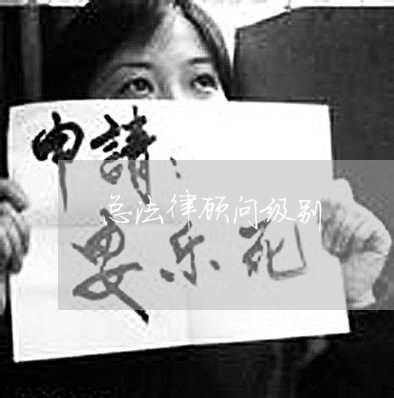 申請：
总法律顾问级别
要乐死